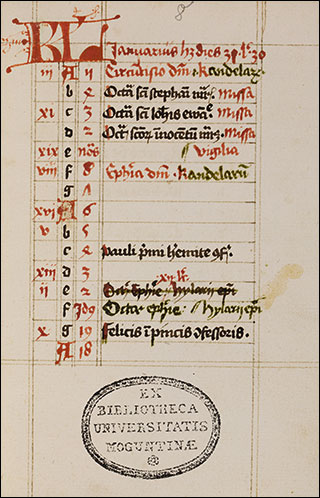 KL Januarius hz dies 31 lu 30
iii A Circucisio dni kandelar
b Octa sci stephani mris Missa
xi c 3 Octa sci Johis ewage Missa
d 2 Octa scor Inocetu mris Missa
xix e nos Vigilia
viii f 8 Ephia dni kandelaru
g
xvi A 6
v b 5
c Pauli pmi hemite
xiii d 3
ii e 2 Oct Ephie hylarii epi
f Id9 Octa ephie hylarii epi
x g 19 Felicis i pincis ofessoris
A 18
EX
BIBLIOTHECA
UNIVERSITATIS
MOGUNTINÆ